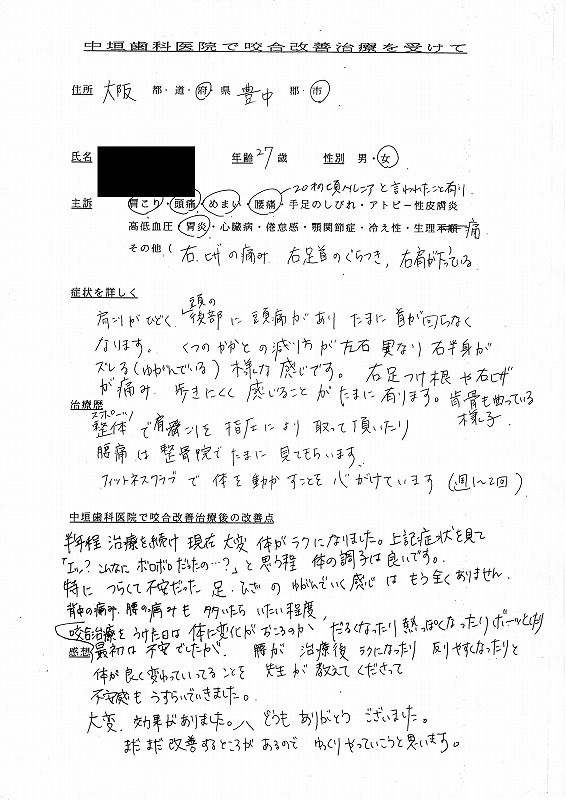 中垣歯科医院で咬合改善治療を受けて
住所 大阪 都・道・府・県 豊中 郡・市
氏名 年齢 27 歳 性別 男・女
20才頃ヘルニアと言われたこと有り
主訴 肩こり・頭痛・めまい・腰痛・手足のしびれ・アトピー性皮膚炎
高低血圧・胃炎・心臓病・倦怠感・顎関節症・冷え性・生理不順 痛
その他( 右ヒザの痛み 右足首のぐらつき, 右肩が下っている
症状を詳しく
肩こりがひどく、頭の後部に頭痛があり たまに首が回らなく
なります。 くつのかかとの減り方が左右異なり 右半身が
ズレる(ゆがんでいる) 様な感じです。 右足つけ根や右ヒザ
が痛み、歩きにくく感じることがたまに有ります。歯骨も曲っている
様子
治療歴
スポーツ
整体で肩こりを指圧により取って頂いたり
腰痛は整骨院でたまに見てもらいます。
フィットネスクラブで体を動かすことを心がけています (週1~2回)
中垣歯科医院で咬合改善治療後の改善点
半年程 治療を続け 現在 大変 体がラクになりました。上記症状を見て
「エッ? こんなにボロボロだったの…?」と思う程 体の調子は良いです。
特に つらくて不安だった 足・ひざの ゆがんでいく感じは もう全くありません。
背中の痛み、腰の痛みも 多いたら いたい程度,
咬合治療をうけた日は 体に変化がおこるのか、だるくなったり 熱っぽくなったり ボーッとしたり
感想 最初は不安でしたが、 腰が 治療後 ラクになったり 反りやすくなったりと
体が良く変わっていってることを 先生が教えてくださって
不安感もうすらいでいきました。
大変、効果がありました。 どうもありがとうございました。
まだまだ改善するところがあるので ゆっくりやっていこうと思います。